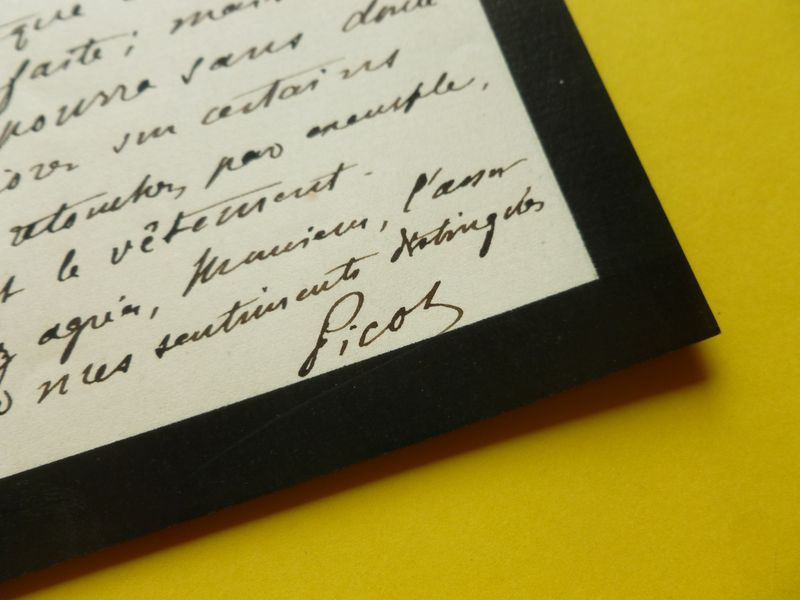 que
faite; mais
pourra sans doute
sur certains
retouches, par exemple,
le vêtement.
agréer, Monsieur, l'assur
mes sentiments distingués
Picot